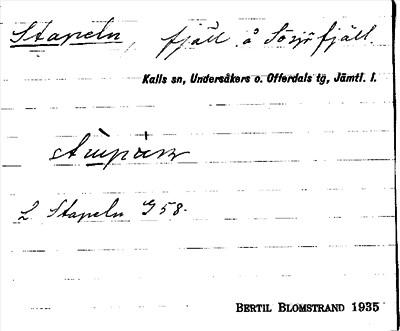 Stapeln, fjäll å Sösjöfjäll.
Kalls sn, Undersåkers o. Offerdals tg, Jämtl. l.
L Stapeln G58.
BERTIL BLOMSTRAND 1935